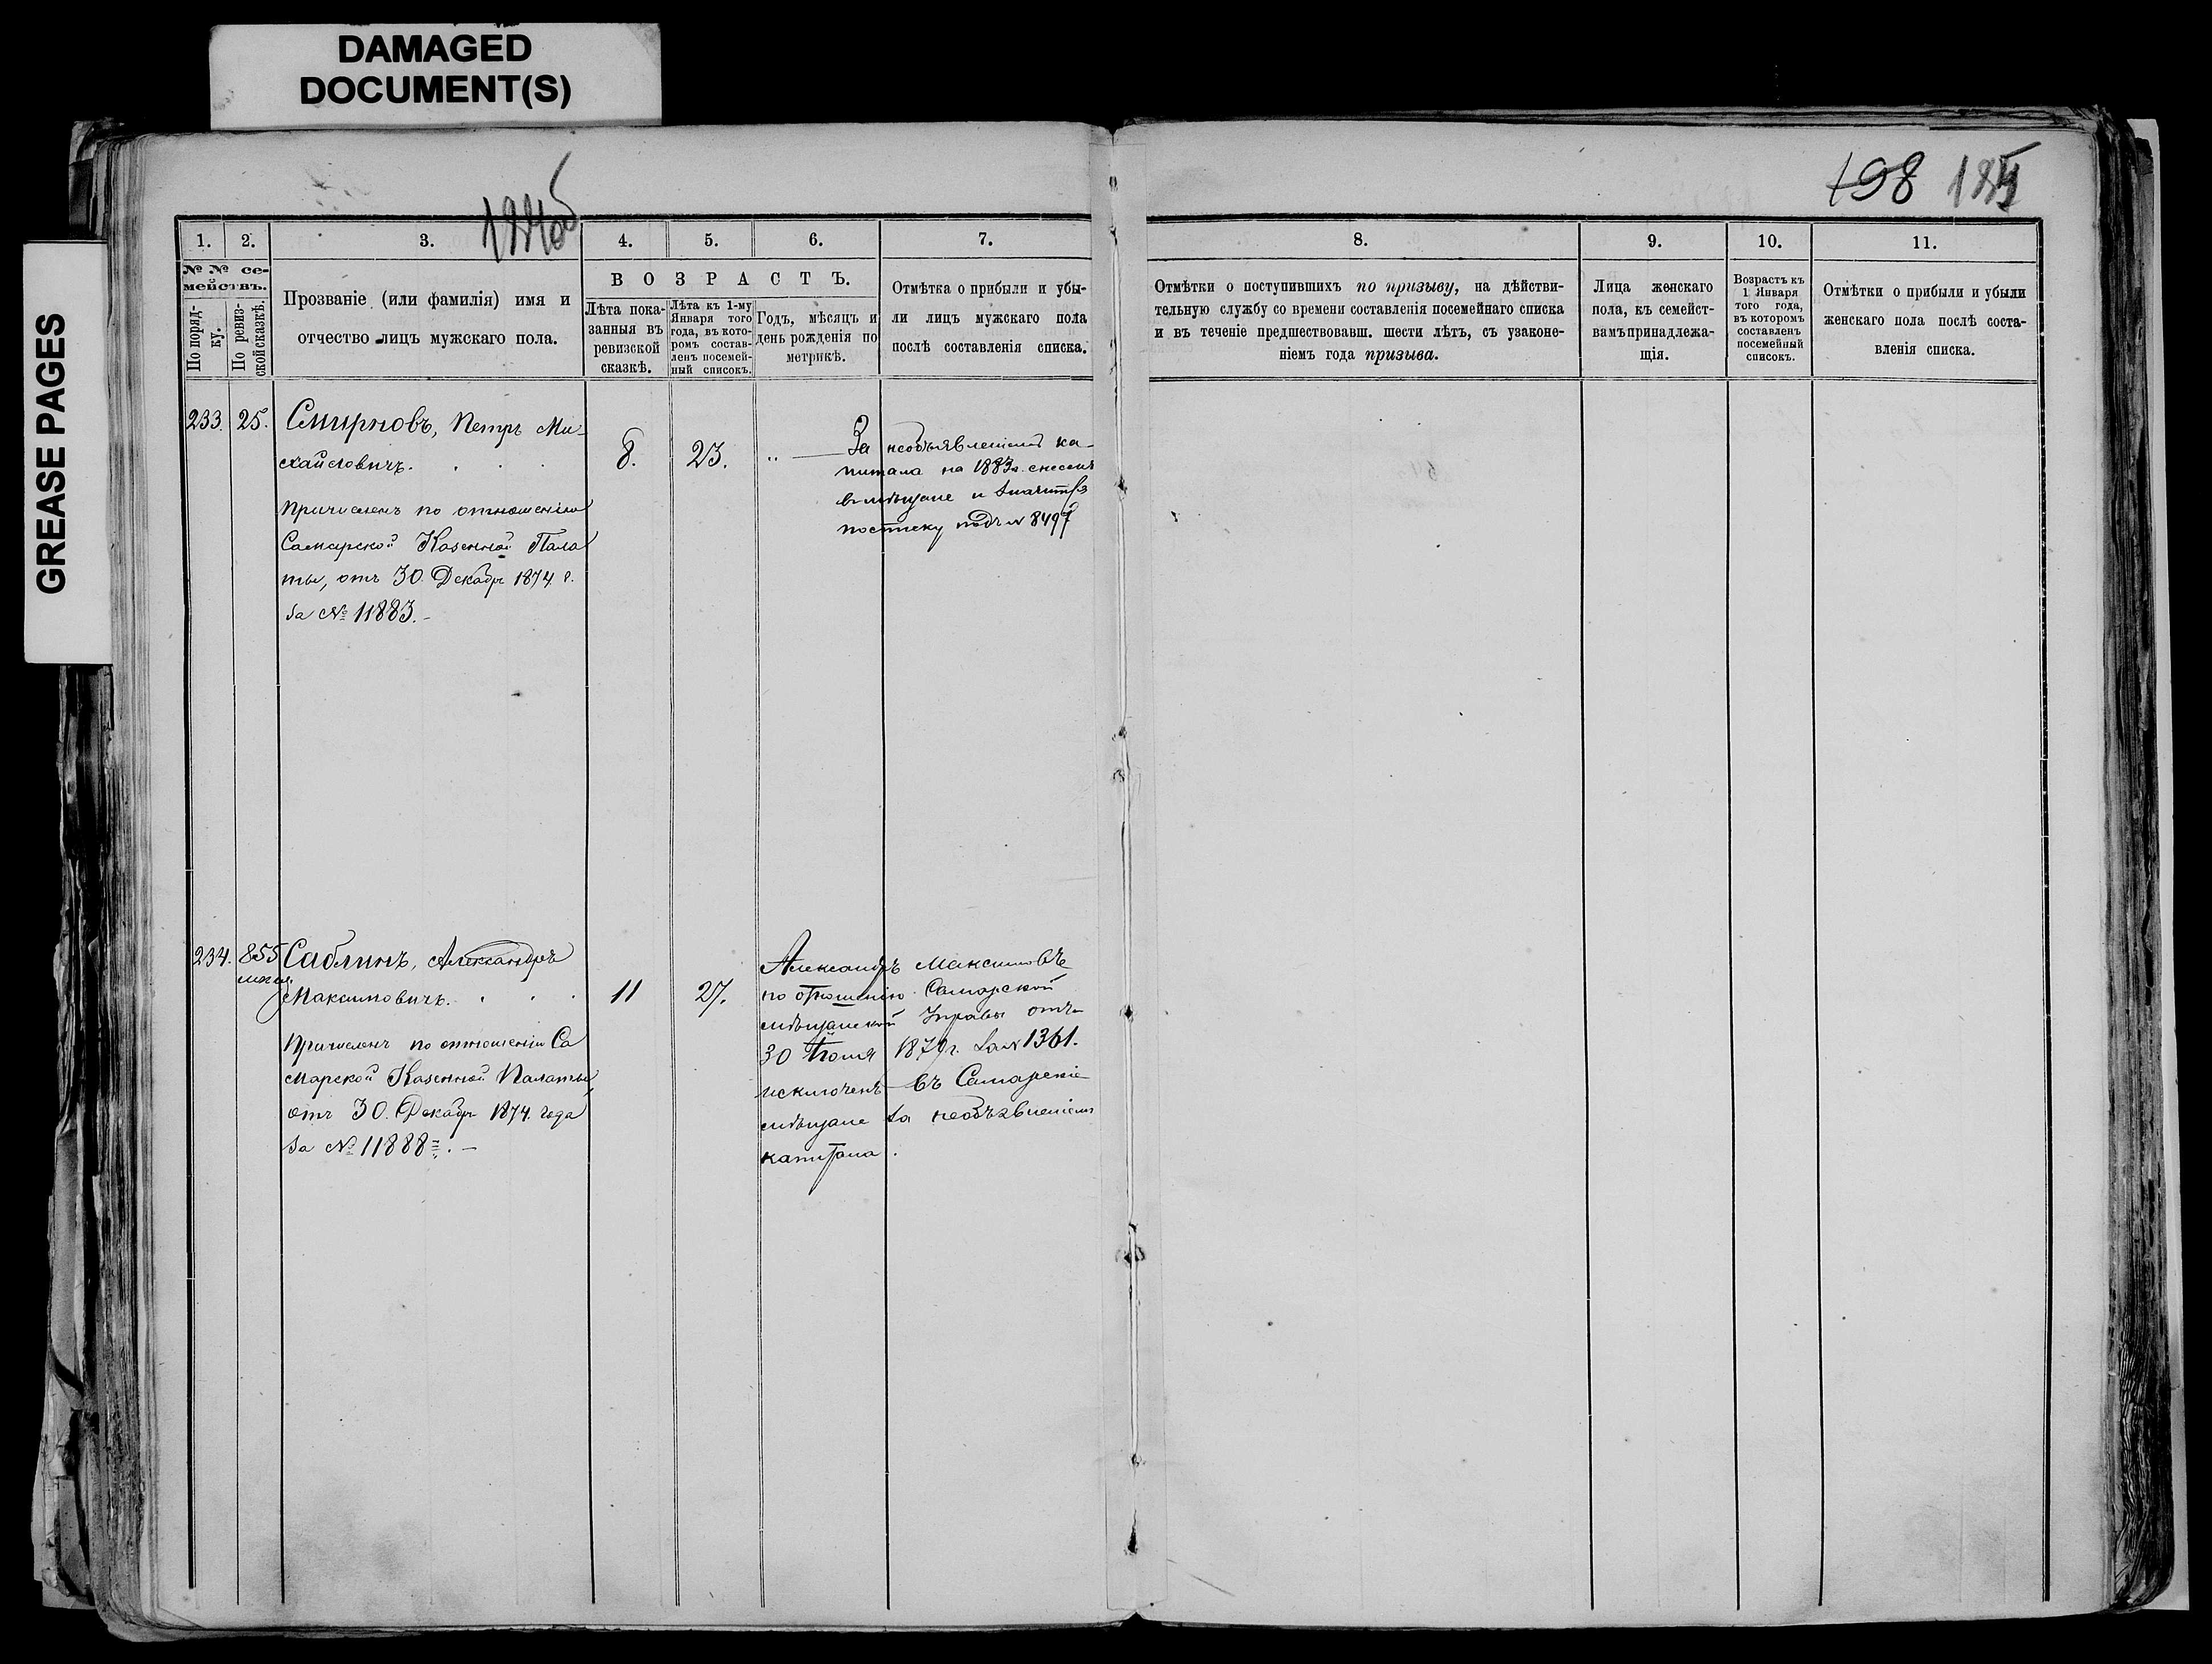 DAMAGED
DOCUMENT(S)
GREASE PAGES
198
1.
2.
3.
4.
5.
6.
7.
8.
9.
10.
11.
№ № се-
мействъ.
По поряд-
ку.
По ревиз-
ской сказкѣ.
Прозваніе (или фамилія) имя и
отчество лицъ мужскаго пола.
ВОЗРАСТЪ.
Лѣта пока-
занныя въ
ревизской
сказкѣ.
Лѣта къ 1-му
Января того
года, въ кото-
ромъ состав-
ленъ посемей-
ный списокъ.
Годъ, мѣсяцъ и
день рожденія по
метрикѣ.
Отмѣтка о прибыли и убы-
ли лицъ мужскаго пола
послѣ составленія списка.
Отмѣтки о поступившихъ по призыву, на дѣйстви-
тельную службу со времени составленія посемейнаго списка
и въ теченіе предшествовавш. шести лѣтъ, съ узаконе-
ніемъ года призыва.
Лица женскаго
пола, къ семейст-
вамъ принадлежа-
щія.
Возрастъ къ
1 Января
того года,
въ которомъ
составленъ
посемейный
списокъ.
Отмѣтки о прибыли и убыли
женскаго пола послѣ соста-
вленія списка.
233. 25. Смирновъ, Петръ Ми-
хайловичъ. . . . 8. 23. „
Причисленъ по отношенію
Самарской Казенной Пала
ты, отъ 30. Декабр 1874 г.
За № 11883.-
За необъявленіемъ ка-
питала на 1883г. снесенъ
въ мѣщане и
под № 8497
234. 855 Саблинъ, Александръ
Максимовичъ. . . . 11 27.
Причисленъ по отношенію Са
марской Казенной Палаты,
отъ 30. Декабр 1874. года
За № 11888=. —
Александръ Максимовъ
по отношенію Самарской
мѣщанской Управы отъ
30 Іюня 187 г. за № 1361.
исключенъ въ Самарскіе
мѣщане за необъявленіемъ
капитала.